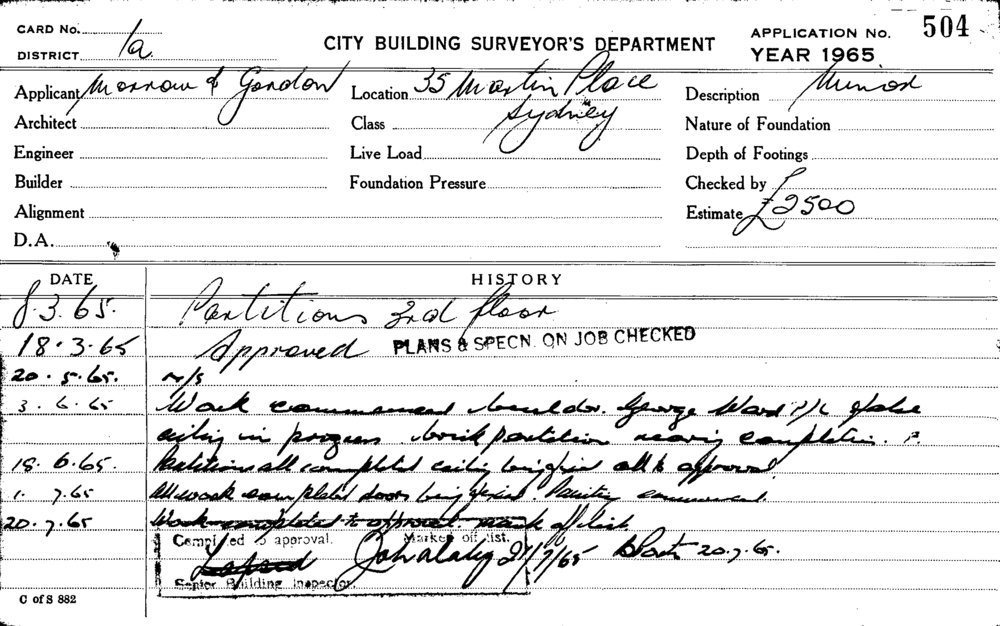 CARD No.
DISTRICT 1a
CITY BUILDING SURVEYOR'S DEPARTMENT
APPLICATION No. 504
YEAR 1965
Applicant Morrow & Gordon
Location 35 Martin Place
Sydney
Description Minor
Architect
Class
Nature of Foundation
Engineer
Live Load
Depth of Footings
Builder
Foundation Pressure
Checked by
Alignment
Estimate £2500
D.A.
DATE HISTORY
8.3.65. Partitions 3rd floor
18.3.65 Approved PLANS & SPECN. ON JOB CHECKED
20.5.65. N/S
3.6.65 Work commenced builder. George Ward P/L false
ceiling in progress brick partition nearing completion.
18.6.65. Partitions all completed ceiling being fixed all to approval
1.7.65 All work completed doors being fixed. Painting commenced.
20.7.65 Work completed to approval mark off list
Completed to approval. Marked off list.
21/7/65 20.7.65.
Senior Building Inspector.
C of S 882